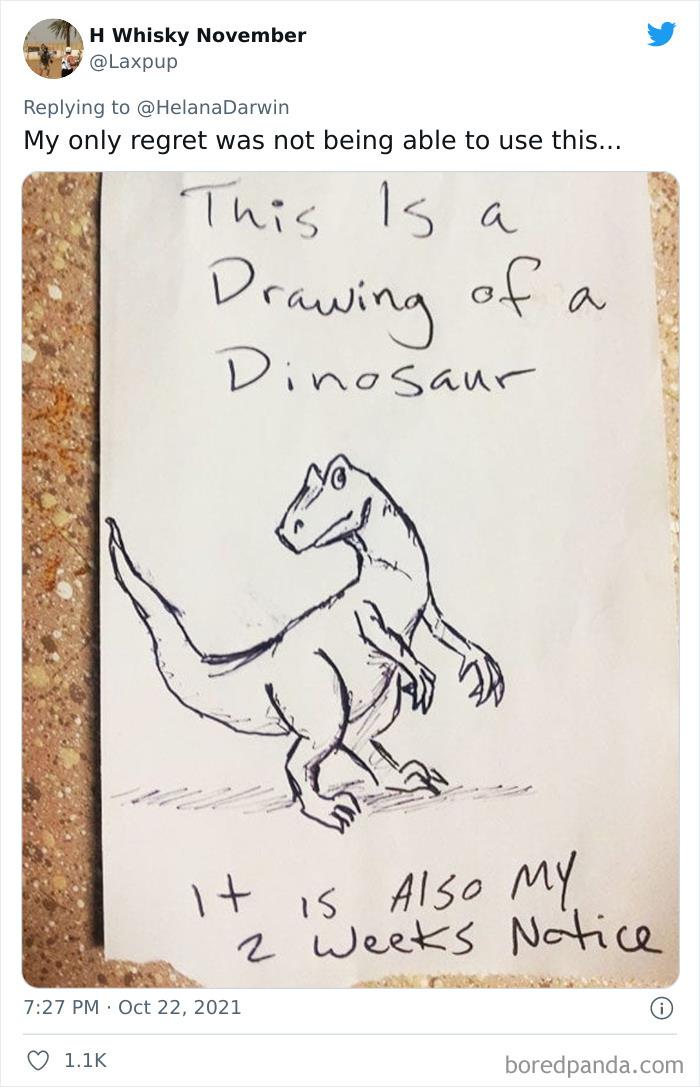 H Whisky November
@Laxpup
Replying to @HelanaDarwin
My only regret was not being able to use this...
This Is a
Drawing of a
Dinosaur
It is Also My
2 Weeks Notice
7:27 PM · Oct 22, 2021
1.1K
boredpanda.com